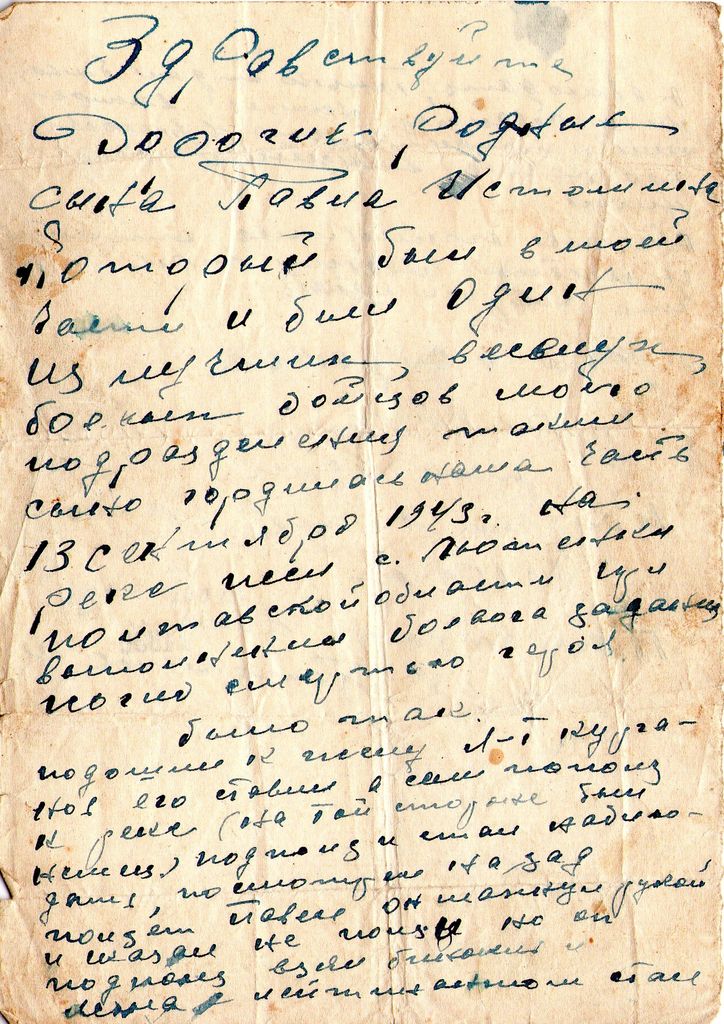 Здравствуйте
Дорогие, Родные
сына Павла
Который был в моей
части и был один
из лучших,
боевых бойцов моего
подразделения таким
сыно гордилась наша часть
13 сентября 1943г. на
реке псел с. Лютенки
полтавской области при
выполнении боевого задания
погиб смертью героя.
было так.
подошли к пслу я-Т Курга-
нов его ставил а сам пополз
к реке (на той стороне были
немцы) подполз и стал наблю-
дать, посмотрел на зад
ползёт Павел он махнул рукой
и сказал не ползи но он
подполз взял бинокль и
лейтенантом стал